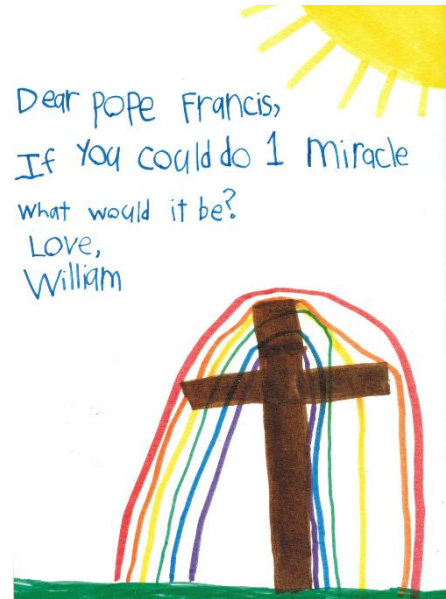 Dear Pope Francis,
If You could do 1 Miracle
what would it be?
Love,
William